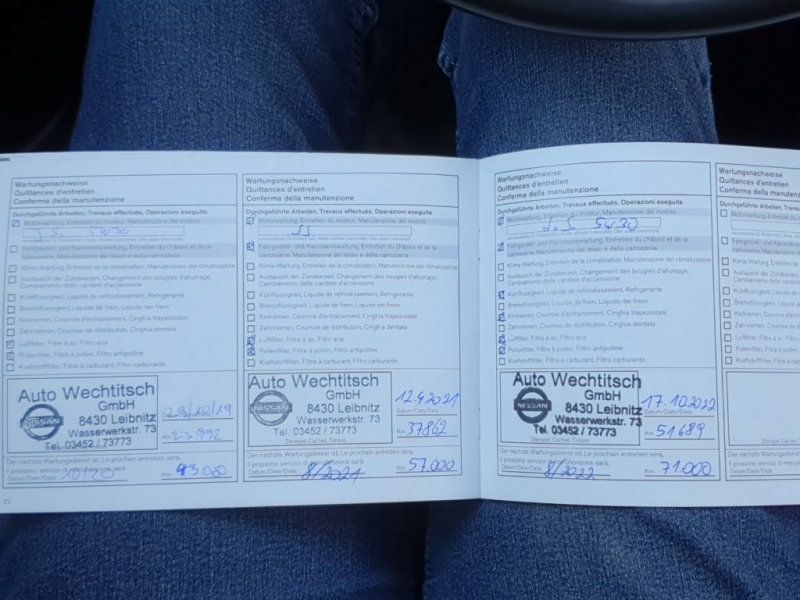 Wartungsnachweise
Quittances d'entretien
Conferma della manutenzione
Durchgeführte Arbeiten, Travaux effectués, Operazioni eseguite
Motorwartung, Entretien du moteur, Manutenzione del motore
5W30
Fahrgestell- und Karosseriewartung, Entretien du châssis et de la
carrosserie, Manutenzione del telaio e della carrozzeria
Klima-Wartung, Entretien de la climatisation, Manutenzione del climatizzatore
Austausch der Zündkerzen, Changement des bougies d'allumage,
Cambiamento delle candele d'accensione
Kühlflüssigkeit, Liquide de refroidissement, Refrigerante
Bremsflüssigkeit, Liquide de frein, Liquido dei freni
Keilriemen, Courroie d'entraînement, Cinghia trapezoidale
Zahnriemen, Courroie de distribution, Cinghia dentata
Luftfilter, Filtre à air, Filtro aria
Pollenfilter, Filtre à pollen, Filtro antipolline
Kraftstofffilter, Filtre à carburant, Filtro carburante
Auto Wechtitsch
GmbH
8430 Leibnitz
Wasserwerkstr. 73
Tel. 03452 / 73773
NISSAN
Km: 23992
Der nächste Wartungsdienst ist, Le prochain entretien sera,
Il prossimo servizio di manutenzione sarà:
Datum/Date/Data: 10/20
Km: 43.000
22
Wartungsnachweise
Quittances d'entretien
Conferma della manutenzione
Durchgeführte Arbeiten, Travaux effectués, Operazioni eseguite
Motorwartung, Entretien du moteur, Manutenzione del motore
Fahrgestell- und Karosseriewartung, Entretien du châssis et de la
carrosserie, Manutenzione del telaio e della carrozzeria
Klima-Wartung, Entretien de la climatisation, Manutenzione del climatizzatore
Austausch der Zündkerzen, Changement des bougies d'allumage,
Cambiamento delle candele d'accensione
Kühlflüssigkeit, Liquide de refroidissement, Refrigerante
Bremsflüssigkeit, Liquide de frein, Liquido dei freni
Keilriemen, Courroie d'entraînement, Cinghia trapezoidale
Zahnriemen, Courroie de distribution, Cinghia dentata
Luftfilter, Filtre à air, Filtro aria
Pollenfilter, Filtre à pollen, Filtro antipolline
Kraftstofffilter, Filtre à carburant, Filtro carburante
Auto Wechtitsch
GmbH
8430 Leibnitz
Wasserwerkstr. 73
Tel. 03452 / 73773
NISSAN
12.4.2021
Datum/Date/Data
Km: 37862
Stempel, Cachet, Timbro
Der nächste Wartungsdienst ist, Le prochain entretien sera,
Il prossimo servizio di manutenzione sarà:
Datum/Date/Data: 8/2021
Km: 57.000
Wartungsnachweise
Quittances d'entretien
Conferma della manutenzione
Durchgeführte Arbeiten, Travaux effectués, Operazioni eseguite
Motorwartung, Entretien du moteur, Manutenzione del motore
5W30
Fahrgestell- und Karosseriewartung, Entretien du châssis et de la
carrosserie, Manutenzione del telaio e della carrozzeria
Klima-Wartung, Entretien de la climatisation, Manutenzione del climatizzatore
Austausch der Zündkerzen, Changement des bougies d'allumage,
Cambiamento delle candele d'accensione
Kühlflüssigkeit, Liquide de refroidissement, Refrigerante
Bremsflüssigkeit, Liquide de frein, Liquido dei freni
Keilriemen, Courroie d'entraînement, Cinghia trapezoidale
Zahnriemen, Courroie de distribution, Cinghia dentata
Luftfilter, Filtre à air, Filtro aria
Pollenfilter, Filtre à pollen, Filtro antipolline
Kraftstofffilter, Filtre à carburant, Filtro carburante
Auto Wechtitsch
GmbH
8430 Leibnitz
Wasserwerkstr. 73
Tel. 03452 / 73773
NISSAN
17.10.2022
Datum/Date/Data
Km: 51689
Stempel, Cachet, Timbro
Der nächste Wartungsdienst ist, Le prochain entretien sera,
Il prossimo servizio di manutenzione sarà:
Datum/Date/Data: 8/2022
Km: 71.000
Wartungsnachweise
Quittances d'entretien
Conferma della manutenzione